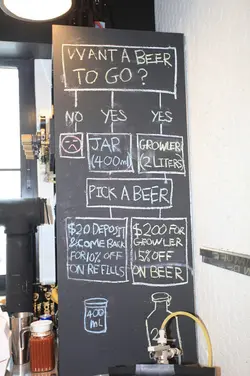 WANT A BEER
TO GO?
NO YES YES
JAR
(400ml)
GROWLER
(2 LITERS)
PICK A BEER
$20 DEPOSIT
& COME BACK
FOR 10% OFF
ON REFILLS
$200 FOR
GROWLER
15% OFF
ON BEER
400
ML
2